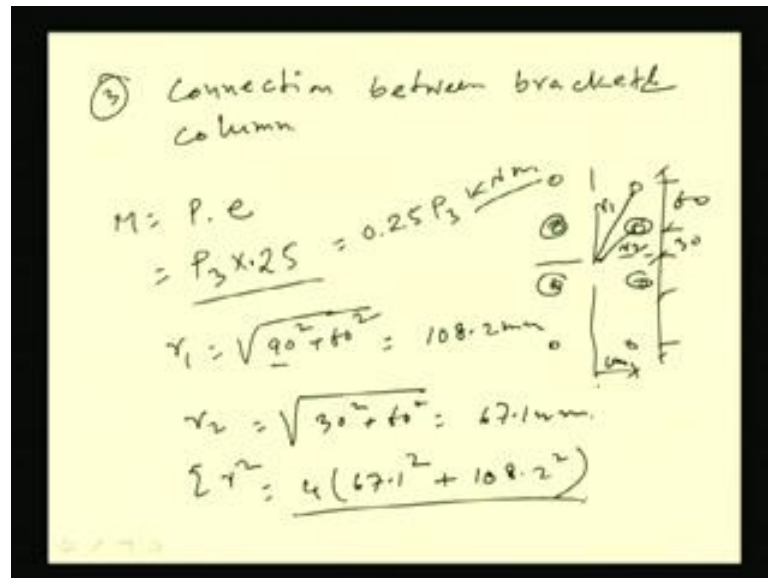 ③ Connection between bracket &
column
M = P.e
= P₃ × .25 = 0.25 P₃ kNm
r₁ = √90² + 60² = 108.2 mm
r₂ = √30² + 60² = 67.1 mm.
Σ r² = 4 (67.1² + 108.2²)
r₁
60
r₂
30
60